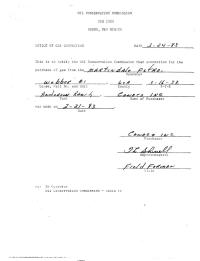 OIL CONSERVATION COMMISSION
BOX 1980
HOBBS, NEW MEXICO
NOTICE OF GAS CONNECTION DATE 2-24-83
This is to notify the Oil Conservation Commission that connection for the
purchase of gas from the Martindale Petro.
Operator
Webber #1
Lease, Well No. and Unit S-T-R
Conoco Inc
Pool Name of Purchaser
was made on 2-21-83
Date
Conoco Inc
Purchaser
Representative
Field Foreman
Title
cc: To Operator
Oil Conservation Commission - Santa Fe